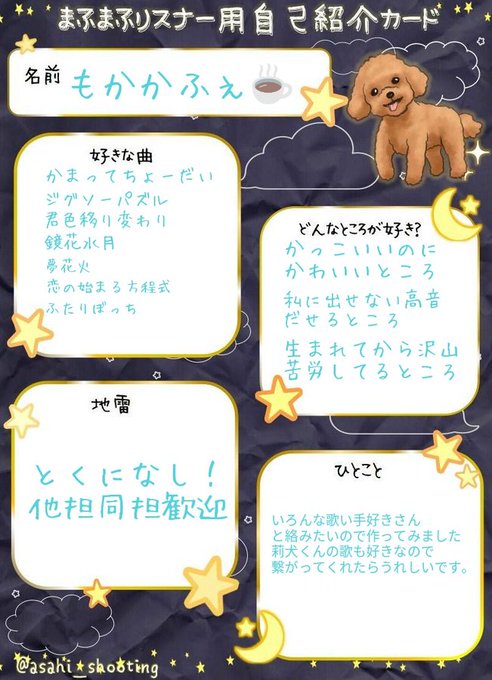 まふまふリスナー用自己紹介カード
名前
もかかふぇ☕
好きな曲
かまってちょーだい
ジグソーパズル
君色移り変わり
鏡花水月
夢花火
恋の始まる方程式
ふたりぼっち
どんなところが好き?
かっこいいのに
かわいいところ
私に出せない高音
だせるところ
生まれてから沢山
苦労してるところ
地雷
とくになし!
他担同担歓迎
ひとこと
いろんな歌い手好きさん
と絡みたいので作ってみました
莉犬くんの歌も好きなので
繋がってくれたらうれしいです。
@asahi_shooting